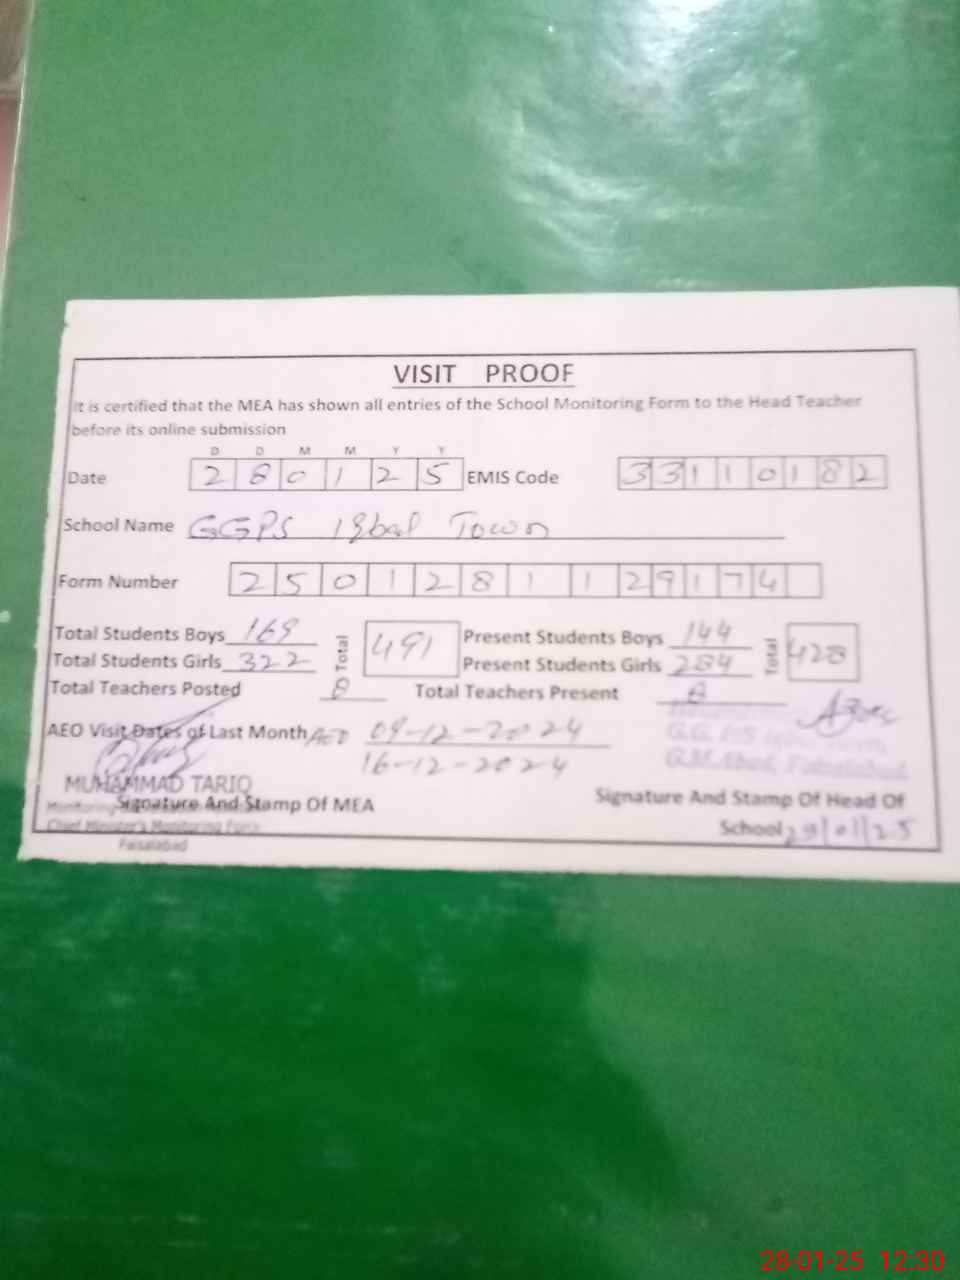 VISIT PROOF
It is certified that the MEA has shown all entries of the School Monitoring Form to the Head Teacher
before its online submission
D D M M Y Y
Date 2 8 0 1 2 5 EMIS Code 3 3 1 1 0 1 8 2
School Name GGPS Iqbal Town
Form Number 2 5 0 1 2 8 1 1 2 9 1 7 4
Total Students Boys 169 Total 491 Present Students Boys 144 Total 428
Total Students Girls 322 Present Students Girls 284
Total Teachers Posted 8 Total Teachers Present 8
AEO Visit Dates of Last Month AEO 09-12-2024
16-12-2024
G.M.Abad, Faisalabad
MUHAMMAD TARIQ
Signature And Stamp Of MEA Signature And Stamp Of Head Of
Chief Minister's Monitoring Force School
Faisalabad
28-01-25 12:30